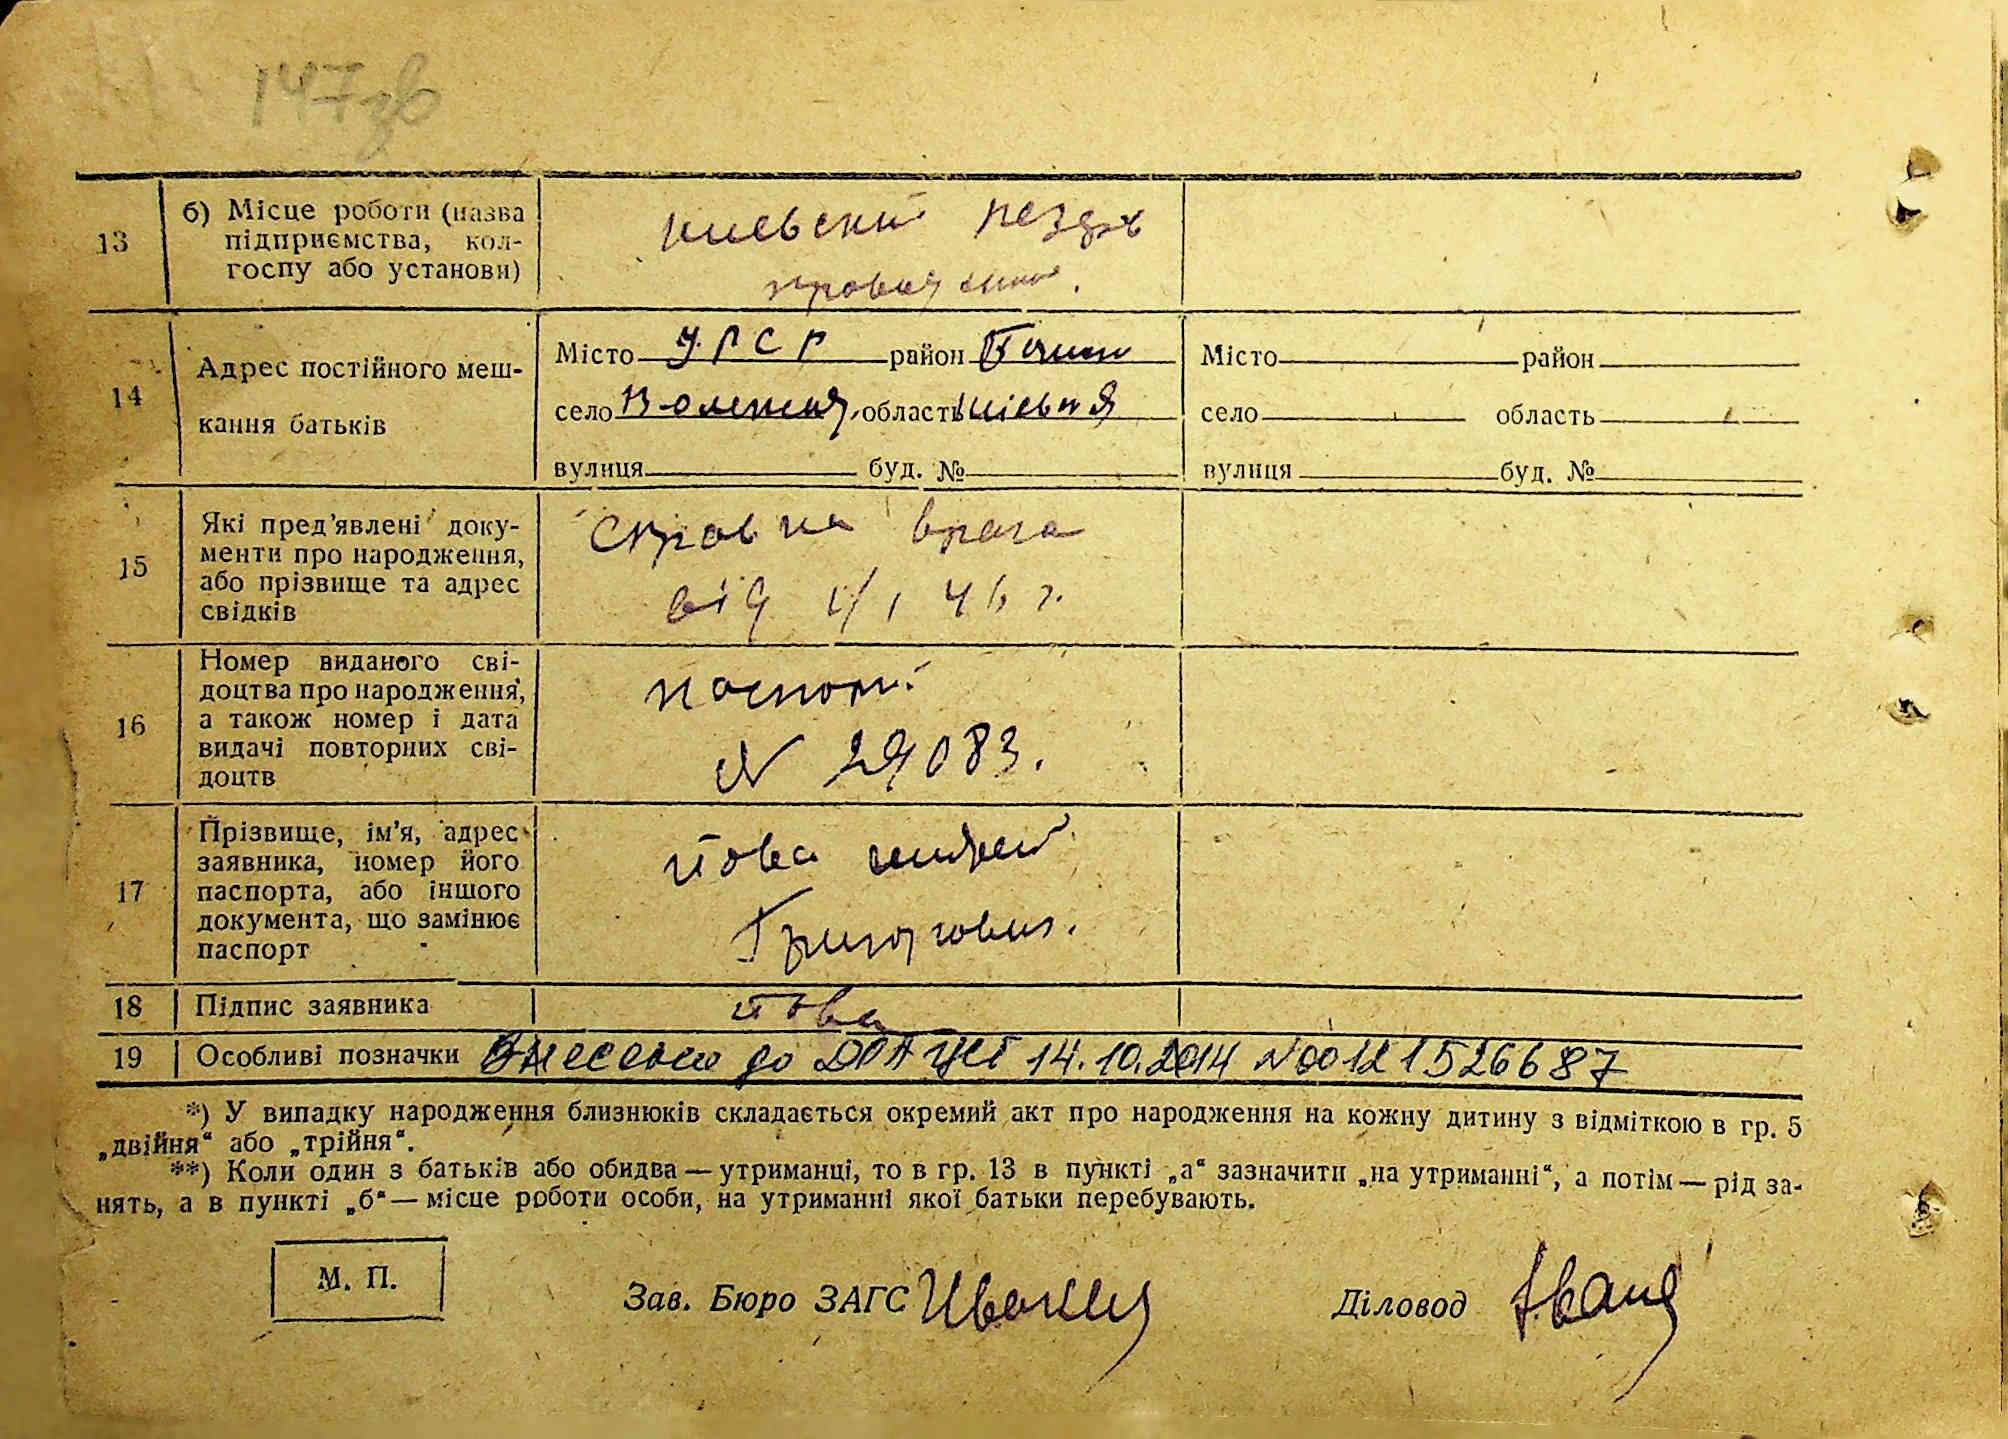 147зв
13
б) Місце роботи (назва
підприємства, кол-
госпу або установи)
киевский
14
Адрес постійного меш-
кання батьків
Місто У.РСР район
село область
вулиця буд. №
Місто район
село область
вулиця буд. №
15
Які пред'явлені доку-
менти про народження,
або прізвище та адрес
свідків
Справка врача
від 46 г.
16
Номер виданого сві-
доцтва про народження,
а також номер і дата
видачі повторних сві-
доцтв
паспорт
N 29083.
17
Прізвище, ім'я, адрес
заявника, номер його
паспорта, або іншого
документа, що замінює
паспорт
Григорович.
18
Підпис заявника
19
Особливі позначки Внесено до 14.10.2014 N00121526687
*) У випадку народження близнюків складається окремий акт про народження на кожну дитину з відміткою в гр. 5
„двійня“ або „трійня“.
**) Коли один з батьків або обидва — утриманці, то в гр. 13 в пункті „а“ зазначити „на утриманні“, а потім — рід за-
нять, а в пункті „б“ — місце роботи особи, на утриманні якої батьки перебувають.
М. П.
Зав. Бюро ЗАГС
Діловод